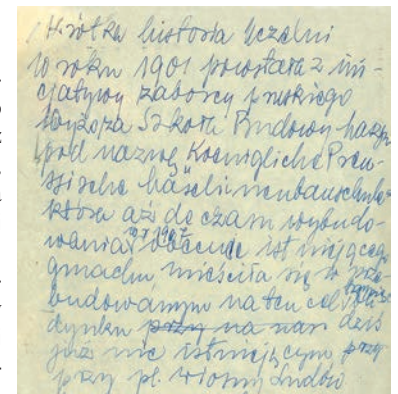 Krótka historia Uczelni
W roku 1901 powstała z ini-
cjatywy zaborcy pruskiego
Wyższa Szkoła Budowy Maszyn
pod nazwą Koenigliche Preu-
ssische
która aż do czasu wybudo-
wania obecnie istniejącego
w r. 1907
gmachu mieściła się w prze-
budowanym na ten cel bu-
dynku przy na nam dziś
już nie istniejącym przy
przy pl. Wiosny Ludów